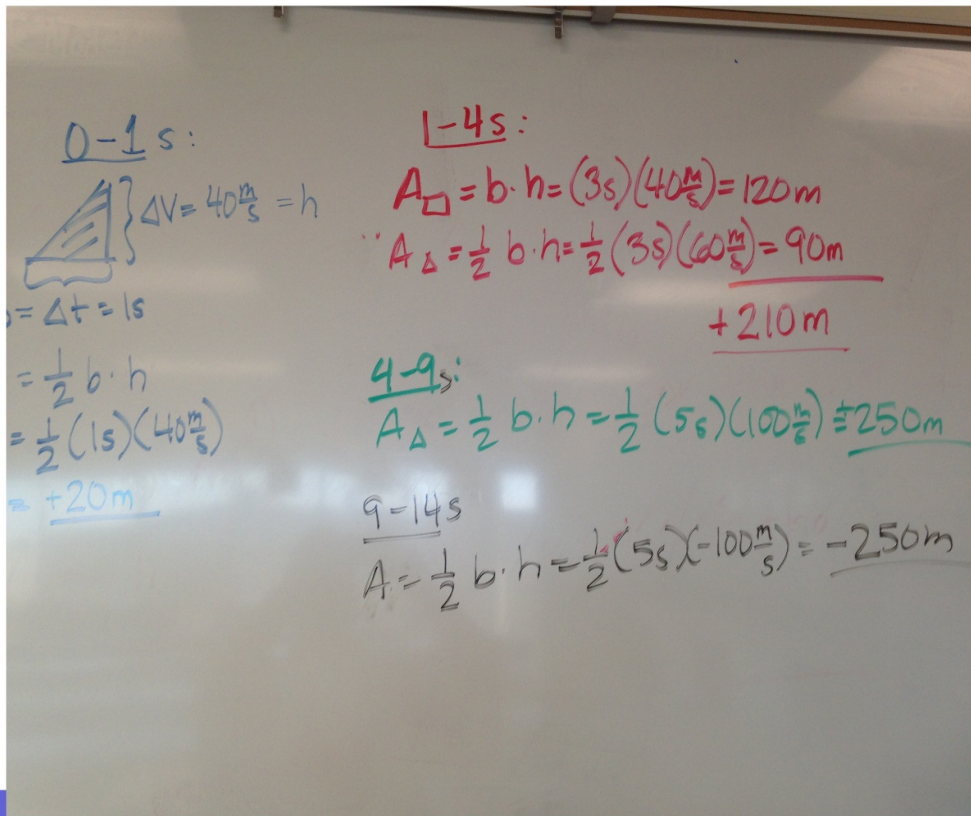 0-1s:
ΔV = 40 m/s = h
= Δt = 1s
= 1/2 b·h
= 1/2 (1s)(40 m/s)
= +20m
1-4s:
A□ = b·h = (3s)(40 m/s) = 120m
AΔ = 1/2 b·h = 1/2 (3s)(60 m/s) = 90m
+210m
4-9s:
AΔ = 1/2 b·h = 1/2 (5s)(100 m/s) = +250m
9-14s
A = 1/2 b·h = 1/2 (5s)(-100 m/s) = -250m